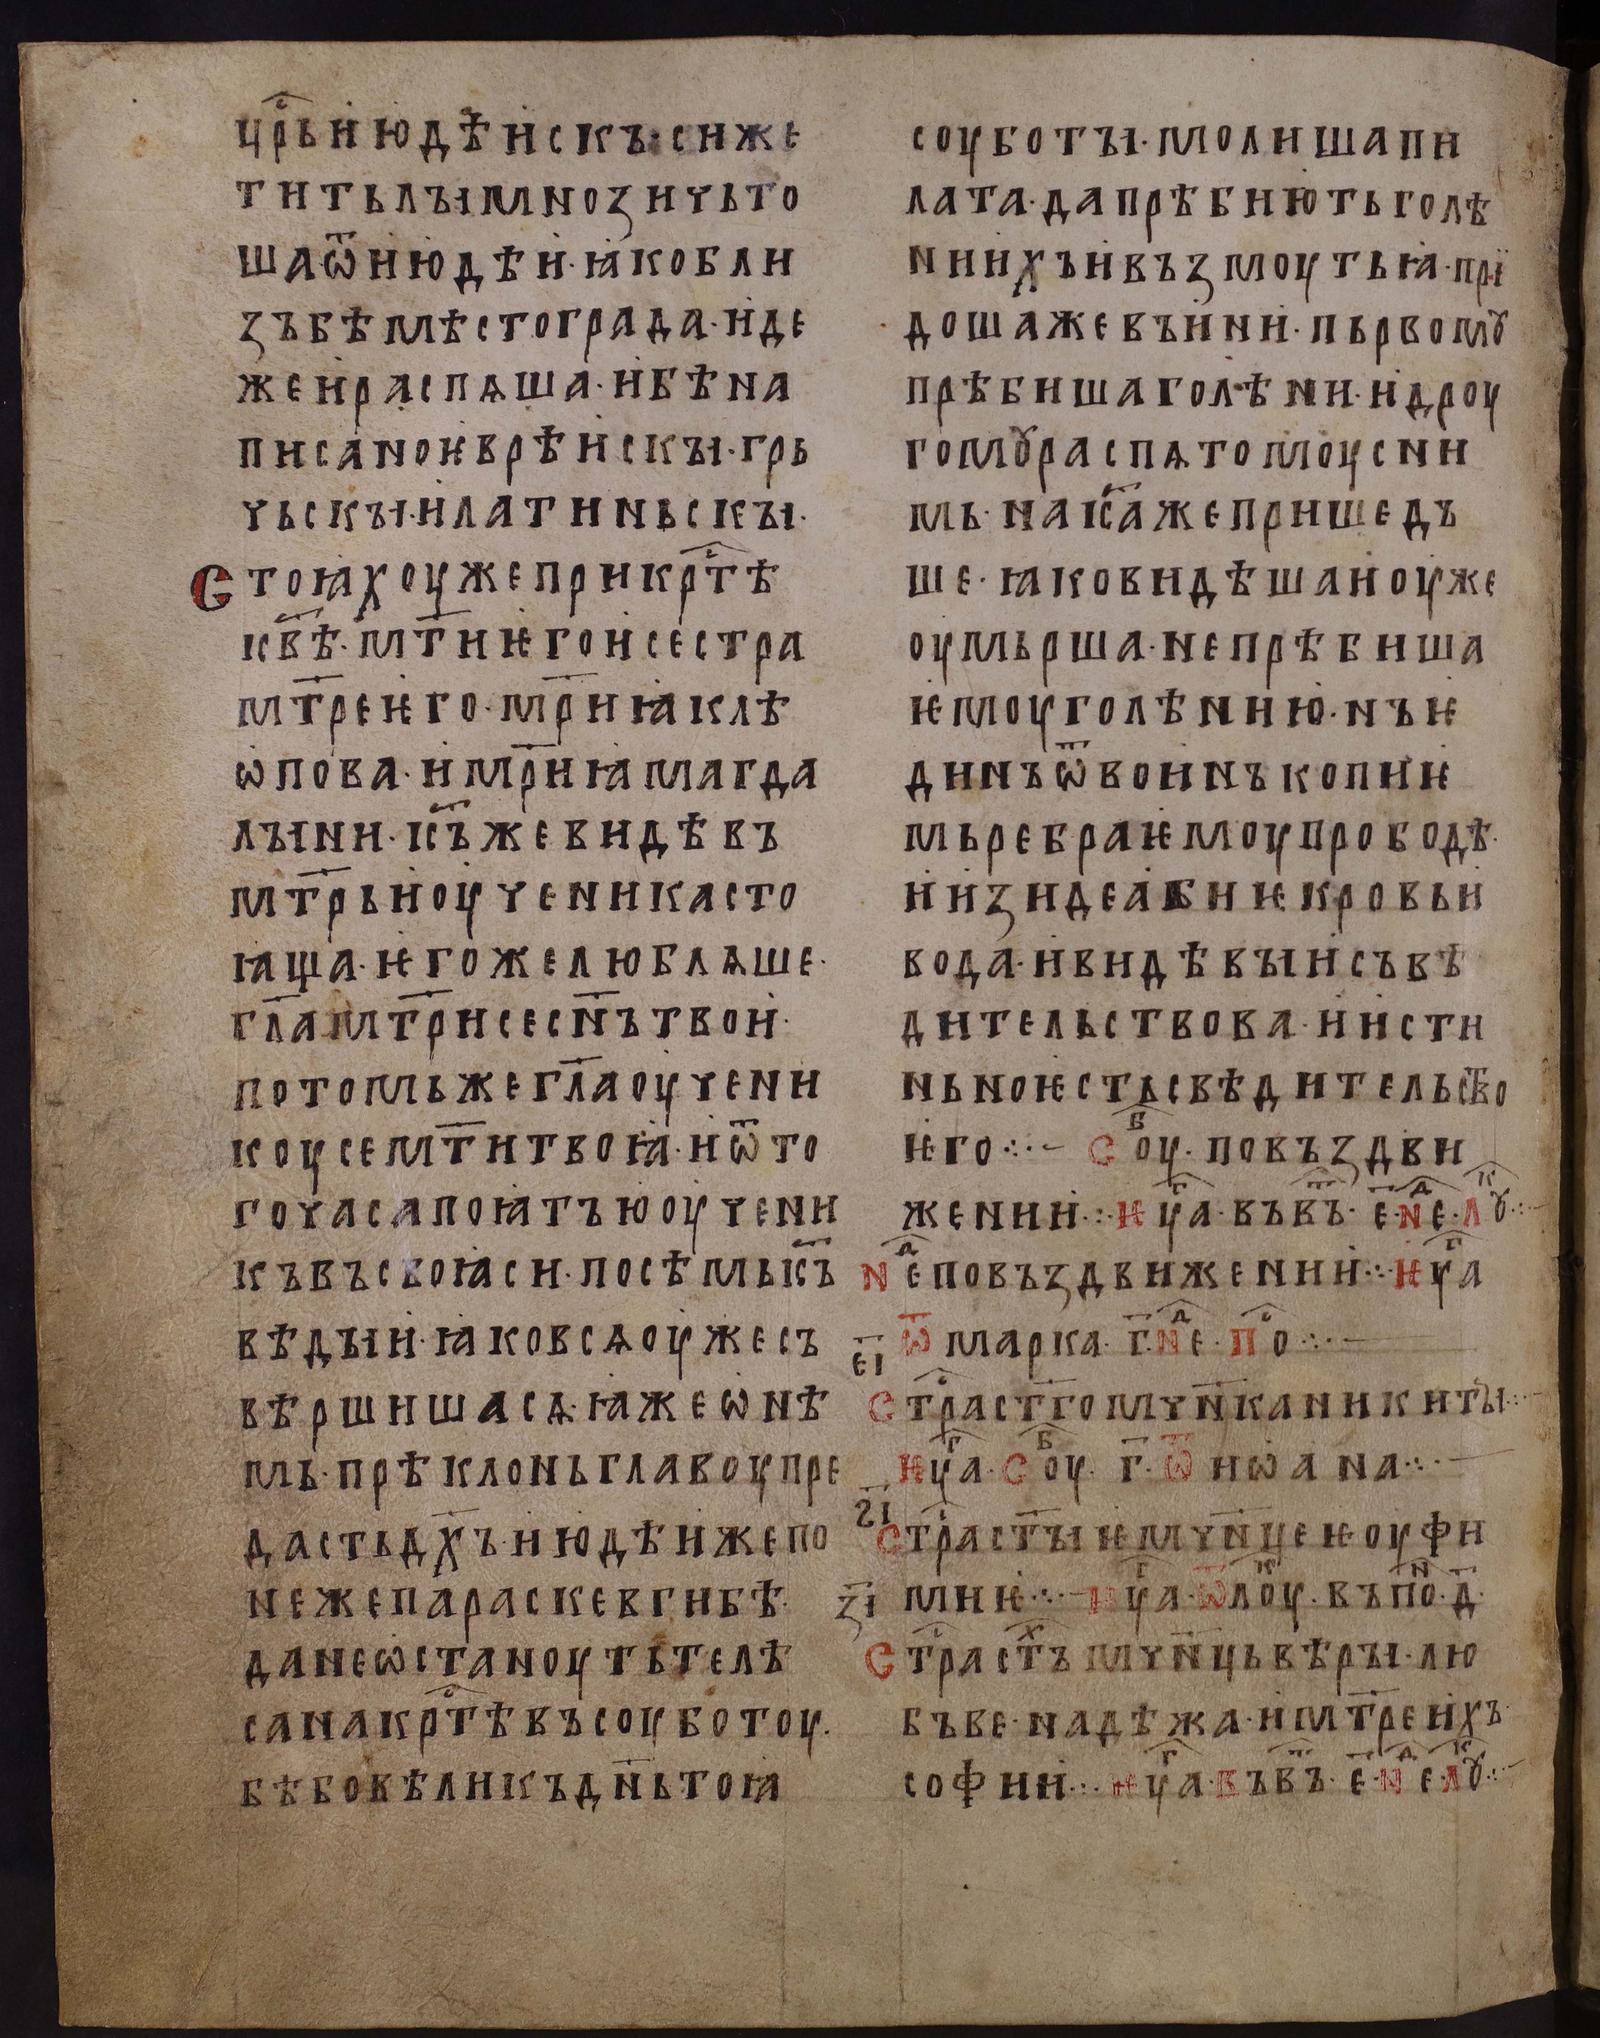 цр҇ь июдѣискъ· сиже
титьлъі мнози чьто
ша ѿ июдѣи· ꙗко бли
зъ бѣ мѣсто града· иде
же и распѧша· и бѣ на
писано ѥврѣискъі· грь
чьскъі· и латиньскъі·
Стоꙗхоу же при кр҇тѣ
їсвѣ· мт҃и ѥго и сестра
мт҃ре ѥго· мр҃иꙗ клѣ
ѡпова· и мр҃иꙗ магда
лъіни· їс҃ъ же видѣвъ
мт҃рь и оученика сто
ꙗща· ѥгоже люблѧше·
гл҃а мт҃ри се сн҃ъ твои·
потомь же гл҃а оучени
коу се мт҃и твоꙗ· и ѿ то
го часа поꙗтъ ю оучени
къ въ своꙗси· по сѣмь їс҃ъ
вѣдъіи· ꙗко всѧ оуже съ
вѣршишасѧ· ꙗже ѡ нѣ
мь· прѣклонь главоу пре
дасть дх҃ъ· июдѣи же по
неже параскевгии бѣ·
да не ѡстаноуть телѣ
са на кр҇тѣ въ соуботоу·
бѣ бо вѣликъ дн҃ь тоꙗ
соуботъі· молиша пи
лата· да прѣбиють голѣ
ни ихъ и възмоуть ꙗ· прї
доша же въини· пьрвомꙋ
прѣбиша голѣни· и дроу
гомꙋ распѧтомоу с ни
мь· на їс҃а же пришедъ
ше· ꙗко видѣша и оуже
оумьрша· не прѣбиша
ѥмоу голѣнию· нъ ѥ
динъ ѿ воинъ копиѥ
мь ребра ѥмоу прободѣ·
и изиде абиѥ кровь и
вода· и видѣвъіи съвѣ
дительствова· и исти
ньно ѥсть свѣдительство
ѥго ⁘ Соуⷠ· по въздви
жении ⁘ ѥуⷢа· въ вⷮъ· е҃· неⷣ· лꙋⷦ ⁘
Неⷣ по въздвижении ⁘ ѥуⷢа
ѿ марка· г҃· неⷣ· поⷭ ⁘
е҃і Стрⷭасть ст҃го мчн҃ка никитъі ⁘
ѥуⷢа· Соуⷠ· г҃· ѿ иѡана ⁘
ѕ҃і Стрⷭасть ст҃ъіѥ мчн҃це ѥоуфи
миѥ ⁘ ѥуⷢа· ѿ лоуⷦ· въ поⷩ· д҃·
з҃і Стрⷭасть стⷯъ мчн҃ць вѣръі· лю
бъве· надѣжа· и мт҃ре ихъ
софии ⁘ ѥуⷢа· въ вⷮъ· е҃· неⷣ· лꙋⷦ ⁘